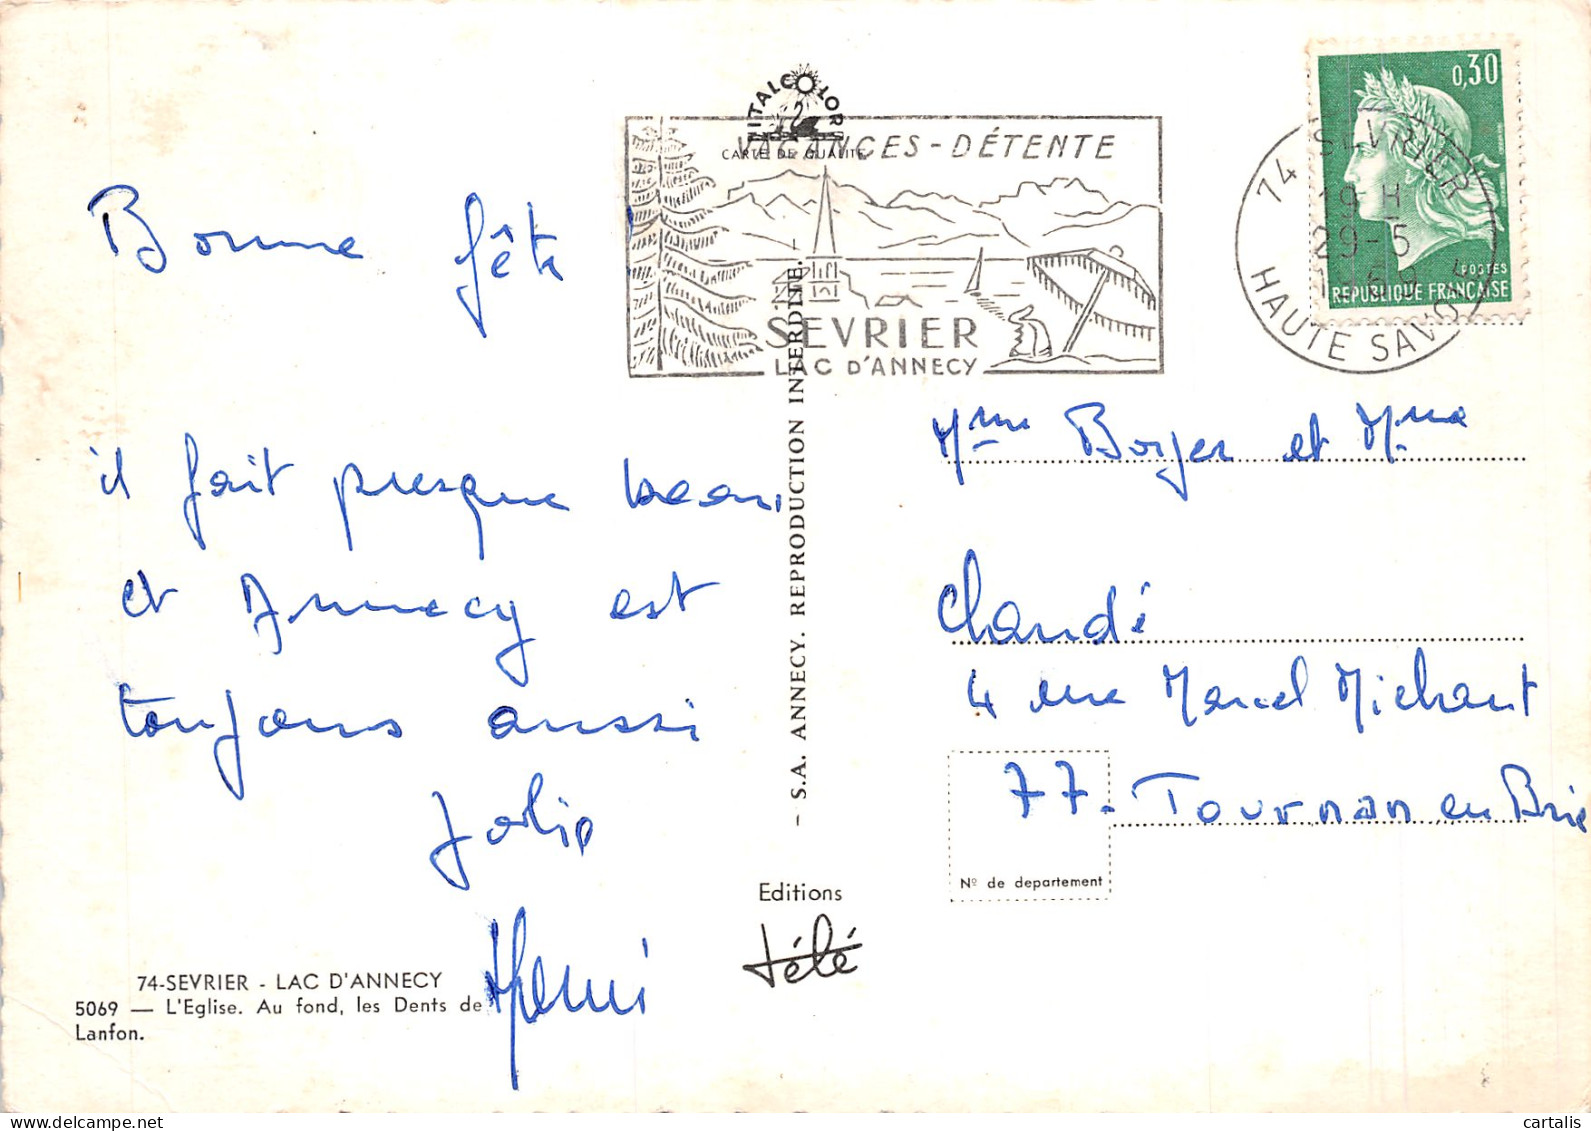 Bonne fête
il fait presque beau
et Annecy est
toujours aussi
jolie
Henri
74-SEVRIER - LAC D'ANNECY
5069 — L'Eglise. Au fond, les Dents de
Lanfon.
ITALCOLOR
CARTE DE QUALITE
VACANCES - DÉTENTE
SEVRIER
LAC D'ANNECY
- S.A. ANNECY. REPRODUCTION INTERDITE. -
Editions
télé
74 SEVRIER
19 H
29-5
HAUTE SAVOIE
0,30
POSTES
REPUBLIQUE FRANÇAISE
Mme Boyer et Mme
Chaudé
4 rue Marcel Michaut
77 - Tournan en Brie
Nº de departement
cartalis